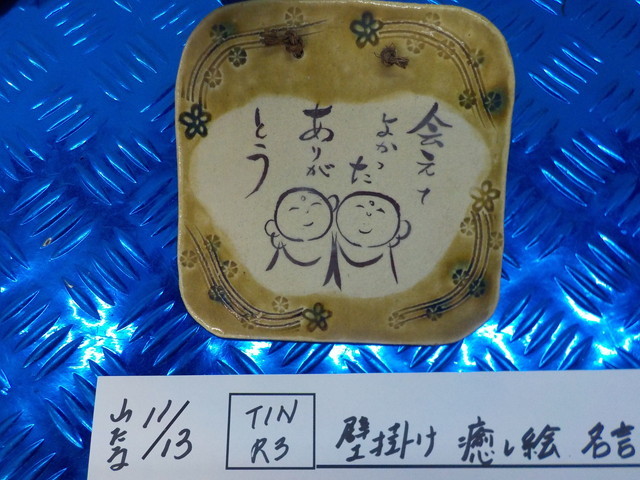 会えて
よかった
ありが
とう
山たな
11/13
TIN
R3
壁掛け 癒し絵 名言